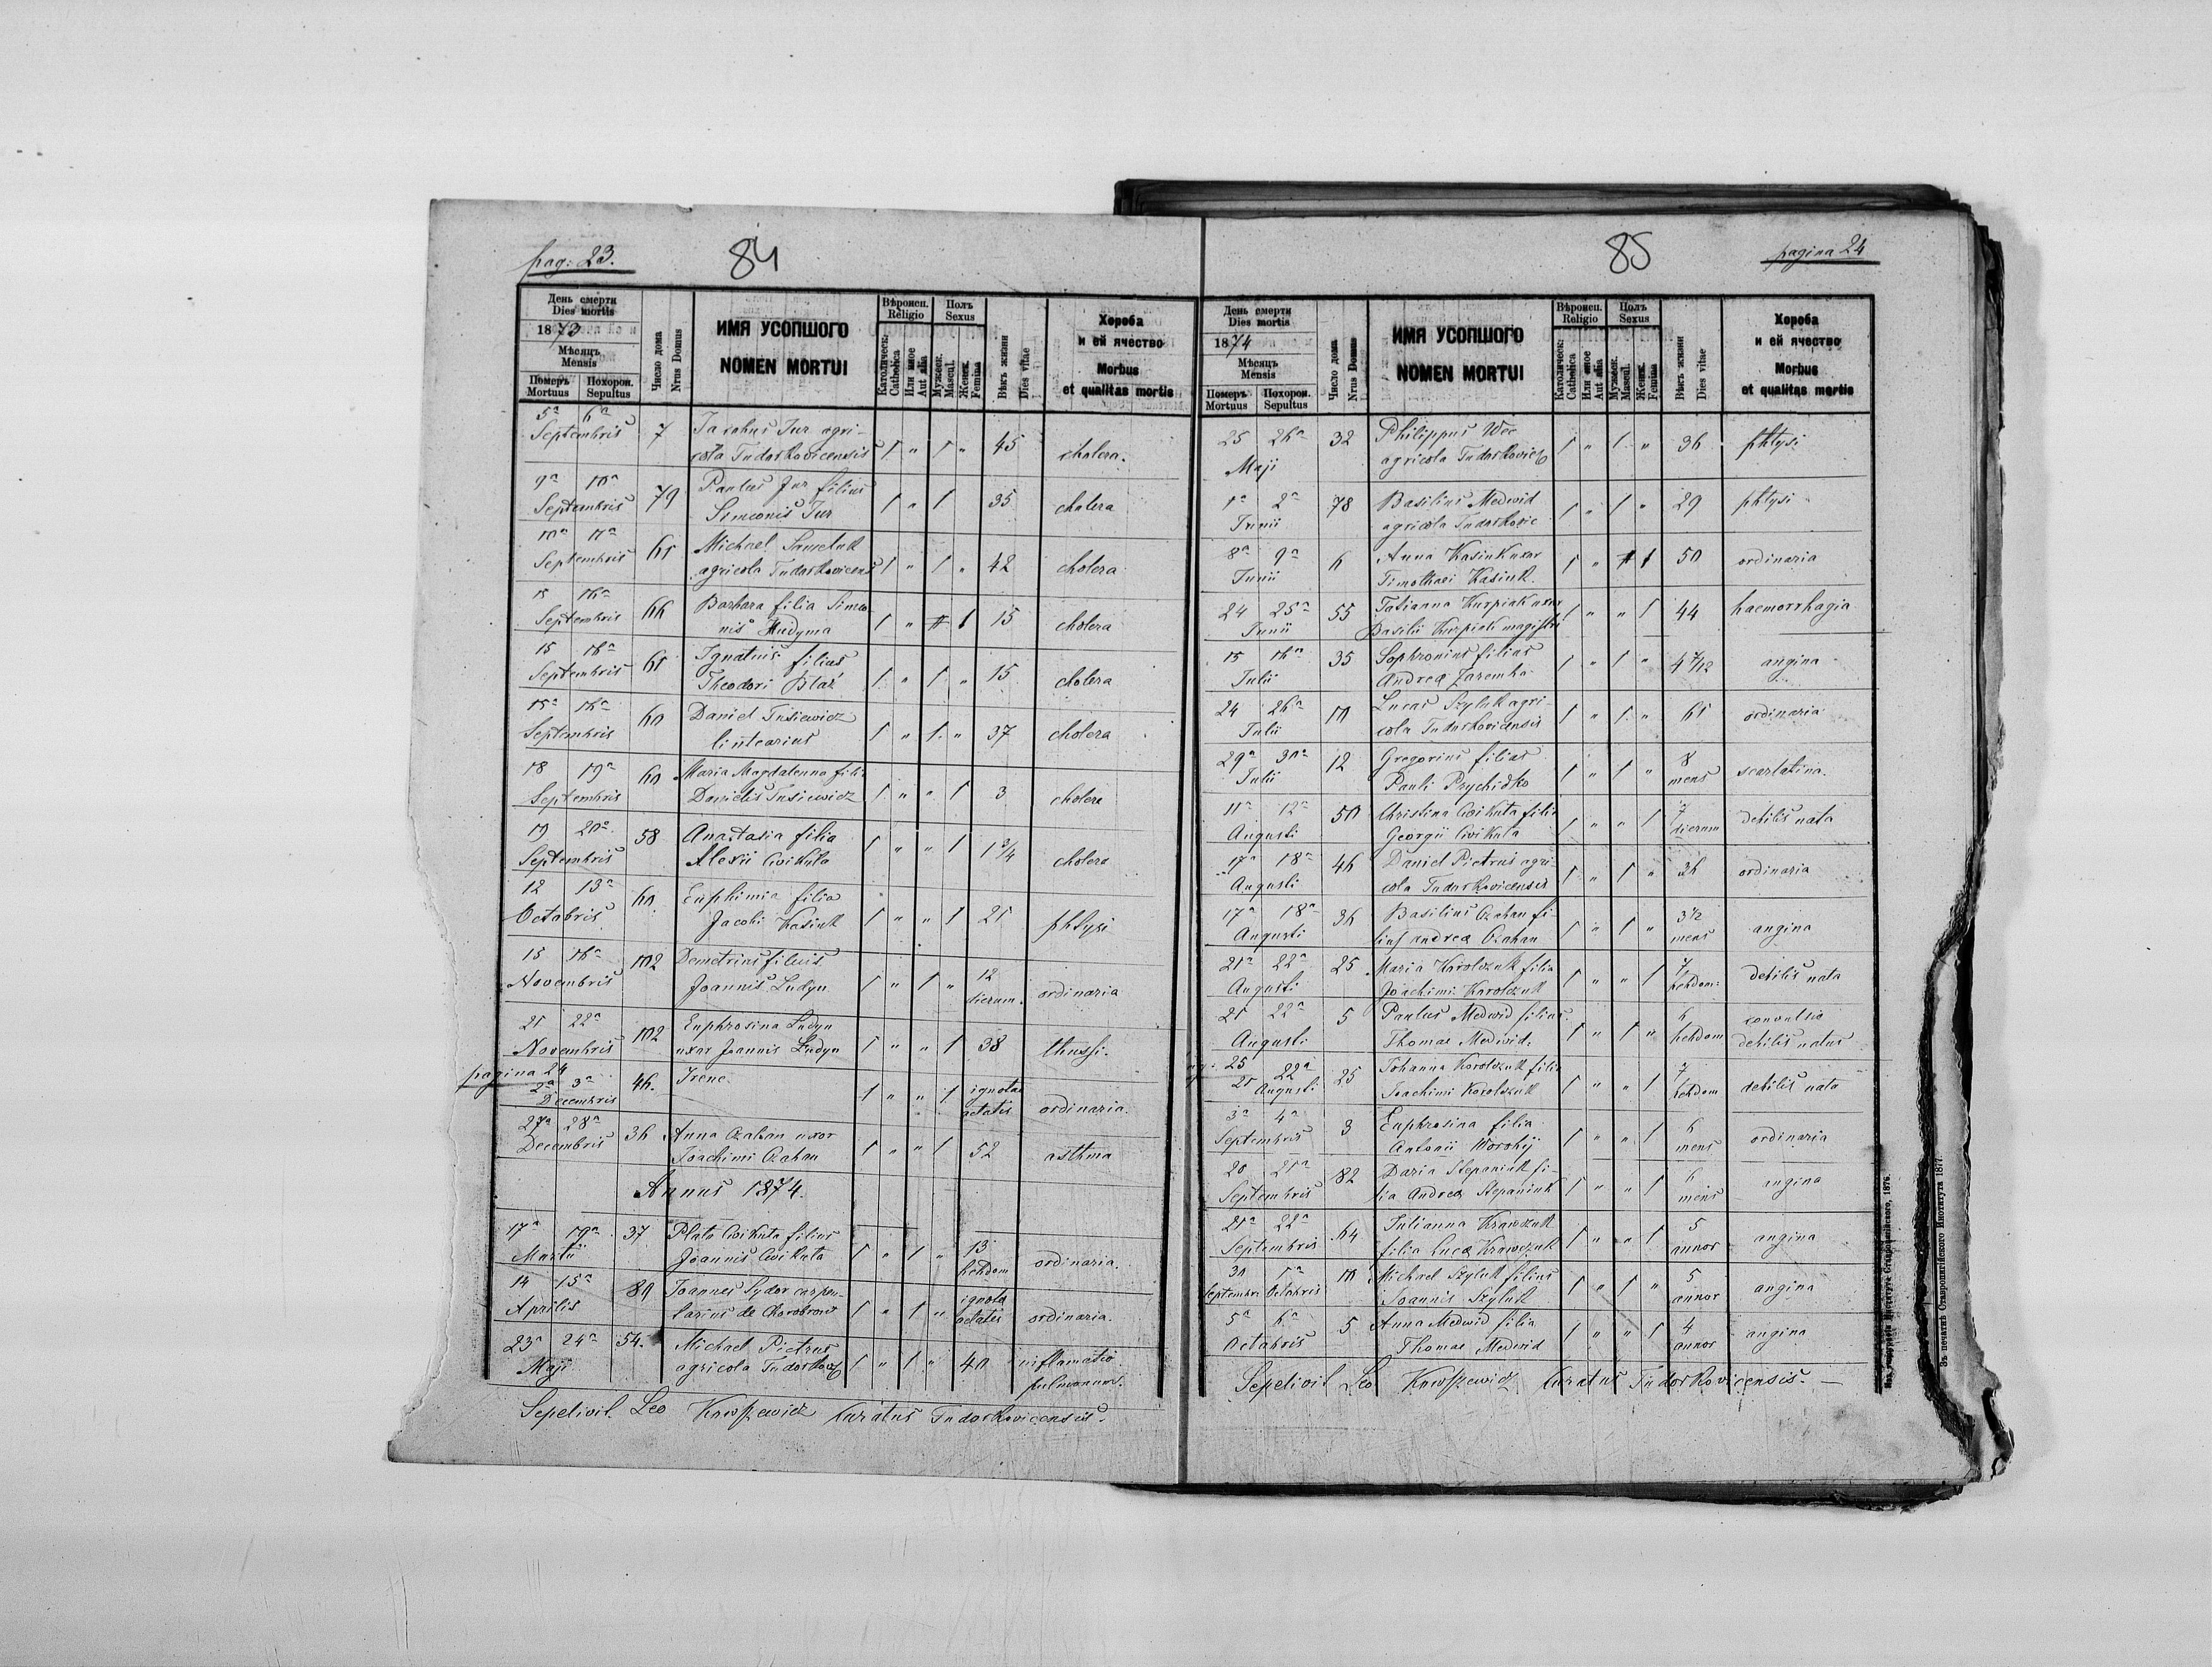 pag: 23.
84
День смерти
Dies mortis
1873
Мѣсяцъ
Mensis
Померъ Похорон.
Mortuus Sepultus
Число дома
Nrus Domus
ИМЯ УСОПШОГО
NOMEN MORTUI
Вѣроисп.
Religio
Католическ:
Catholica
Или иное
Aut alia
Полъ
Sexus
Мужеск.
Mascul.
Женск.
Femina
Вѣкъ жизни
Dies vitae
Хороба
и ей ячество
Morbus
et qualitas mortis
5ª 6ª
Septembris 7 Jacobus Jur agri-
cola Tudorkovicensis 1 " 1 " 45 cholera.
9ª 10ª
Septembris 79 Paulus Jur filius
Simeonis Jur 1 " 1 35 cholera
10ª 11ª
Septembris 61 Michael
agricola Tudorkovicens 1 " 1 " 42 cholera
15 16ª
Septembris 66 Barbara filia Simeo
nis Hudyma 1 " 1 15 cholera
15 16ª
Septembris 61 Ignatius filius
Theodori Blaż 1 " 1 " 15 cholera
15ª 16ª
Septembris 60 Daniel Tusiewicz
lintearius 1 " 1 " 37 cholera
18 19ª
Septembris 60 Maria Magdalenna filia
Danielis Tusiewicz 1 " " 1 3 cholera
19 20ª
Septembris 58 Anastasia filia
Alexii Cwikuta 1 " " 1 1 3/4 cholera
12 13ª
Octobris 60 Euphimia filia
Jacobi Kasiuk 1 " " 1 21 phtysi
15 16ª
Novembris 102 Demetrius filius
Joannis Ludyn 1 " 1 " 12
dierum. ordinaria
21 22ª
Novembris 102 Euphrosina Ludyn
uxor Joannis Ludyn 1 " " 1 38 thussi.
pagina 24
2ª 3ª
Decembris 46. Irene 1 " " 1 ignotae
aetatis ordinaria.
27ª 28ª
Decembris 36 Anna Czaban uxor
Joachimi Czaban 1 " " 1 52 asthma
Annus 1874.
17ª 19ª 37 Plato Cwikuta filius
Martii Joannis Cwikuta 1 " 1 " 13
hebdom ordinaria.
14 15ª 80 Joannes Sydor carpen-
Aprilis tarius de Chorobrow 1 " 1 " ignota
aetatis ordinaria.
23ª 24ª 54. Michael Pietrus
Maji agricola Tudorkov 1 " 1 " 40 inflamatio
pulmonum.
Sepelivit Leo Curatus Tudorkovicensis.
85
pagina 24
День смерти
Dies mortis
1874
Мѣсяцъ
Mensis
Померъ Похорон.
Mortuus Sepultus
Число дома
Nrus Domus
ИМЯ УСОПШОГО
NOMEN MORTUI
Вѣроисп.
Religio
Католическ:
Catholica
Или иное
Aut alia
Полъ
Sexus
Мужеск.
Mascul.
Женск.
Femina
Вѣкъ жизни
Dies vitae
Хороба
и ей ячество
Morbus
et qualitas mortis
25 26ª 32 Philippus Wec
Maji agricola Tudorkovic 1 " 1 " 36 phtysi
1ª 2ª 78 Basilius Medwid
Junii agricola Tudorkovic 1 " 1 " 29 phtysi
8ª 9ª 6 Anna Kasiuk uxor
Junii Timothaei Kasiuk 1 " 1 50 ordinaria
24 25ª 55 Tatianna Kurpiak uxor
Junii Basilii Kurpiak magistri 1 " " 1 44 haemorrhagia
15 16ª 35 Sophronius filius
Julii Andreæ Zaremba 1 " 1 " 4 7/12 angina
24 26ª 10 Lucas Szyluk agri-
Julii cola Tudorkovicensis 1 " 1 " 61 ordinaria
29ª 30ª 12 Gregorius filius
Julii Pauli Prychidko 1 " 1 " 8
mens scarlatina.
11ª 12ª 50 Christina Cwikuta filia
Augusti Georgii Cwikuta 1 " " 1 7
dierum debilis nata
17ª 18ª 46 Daniel Pietrus agri-
Augusti cola Tudorkovicensis 1 " 1 " 36 ordinaria
17ª 18ª 36 Basilius Czaban fi-
Augusti lius Andreæ Czaban 1 " 1 " 3 1/2
mens angina
21ª 22ª 25 Maria Korolczuk filia
Augusti Joachimi Korolczuk 1 " " 1 7
hebdom: debilis nata
21 22ª 5 Paulus Medwid filius
Augusti Thomae Medwid. 1 " 1 " 6
hebdom convulsio
debilis natus
25
21 22ª
Augusti 25 Johanna Korolczuk filia
Joachimi Korolczuk 1 " " 1 7
hebdom debilis nata
3ª 4ª
Septembris 3 Euphrosina filia
Antonii Worobij 1 " " 1 6
mens ordinaria
20 21ª
Septembris 82 Daria Stepaniuk fi-
lia Andreæ Stepaniuk 1 " " 1 6
mens angina
21ª 22ª
Septembris 64 Julianna Krawczuk
filia Lucæ Krawczuk 1 " " 1 5
annor angina
30 1ª
Septembr. Octobris 10 Michael Szyluk filius
Joannis Szyluk 1 " 1 " 5
annor angina
5ª 6ª
Octobris 5 Anna Medwid filia
Thomae Medwid 1 " " 1 4
annor angina
Sepelivit Leo Curatus Tudorkovicensis. —
Зъ печатнѣ Ставропигійского Института 1877.